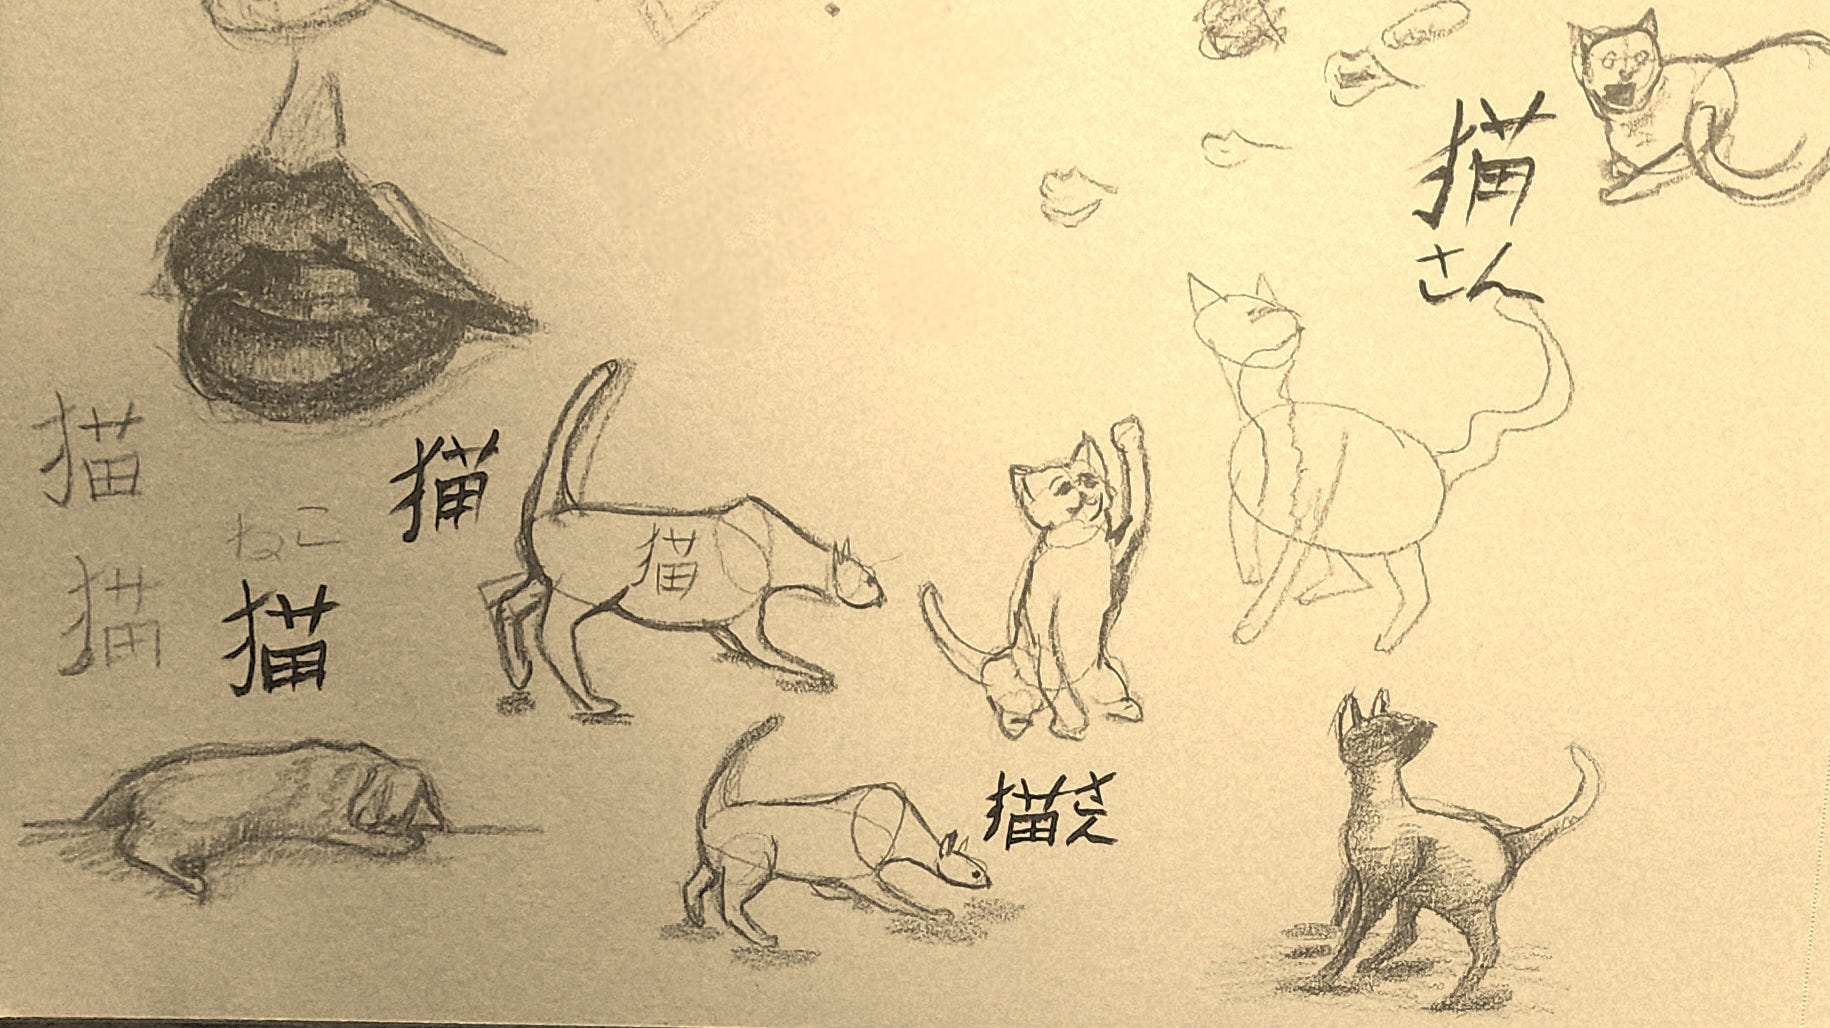 猫
さん
猫
猫
ねこ
猫
猫
猫
猫さん